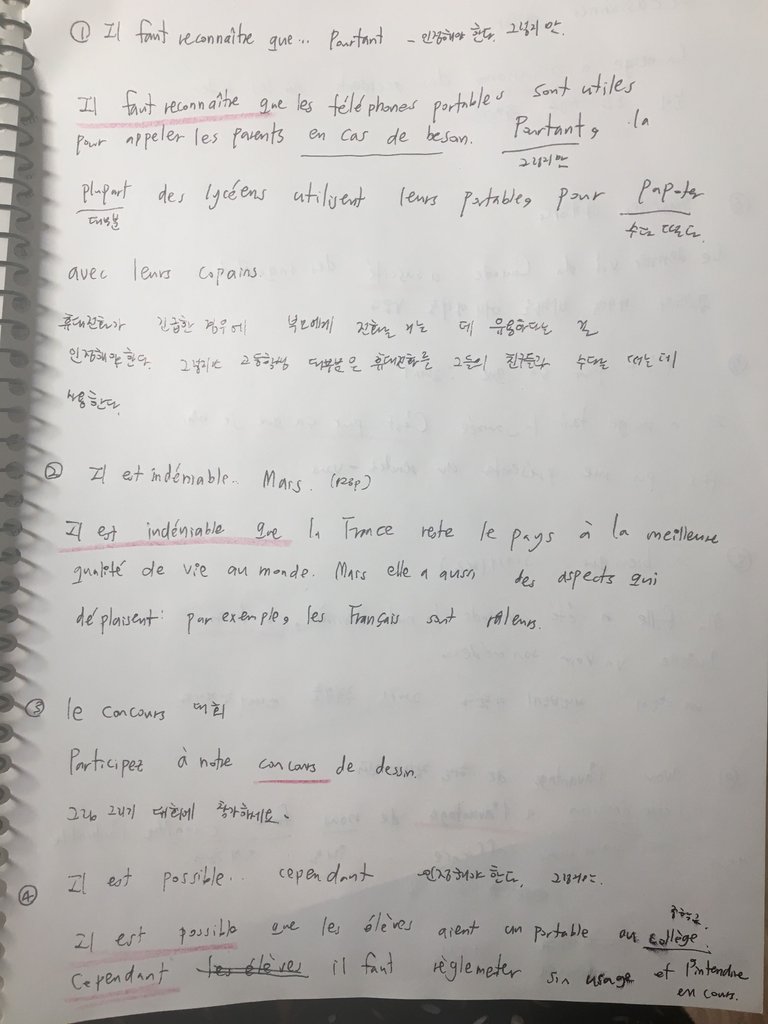 ① Il faut reconnaître que... Pourtant - 인정해야 한다. 그렇지만.
Il faut reconnaître que les téléphones portables sont utiles
pour appeler les parents en cas de besoin. Pourtant, la
그렇지만
plupart des lycéens utilisent leurs portables pour papoter
대부분 수다 떠는다.
avec leurs copains.
휴대전화가 긴급한 경우에 부모에게 전화를 거는 데 유용하다는 걸
인정해야 한다. 그렇지만 고등학생 대부분은 휴대전화를 그들의 친구들과 수다를 떠는데
사용한다.
② Il et indéniable.. Mais.
Il est indéniable que la France reste le pays à la meilleure
qualité de vie au monde. Mais elle a aussi des aspects qui
déplaisent: par exemple, les Français sont râleurs.
③ le concours 대회
Participez à notre concours de dessin.
그림 그리기 대회에 참가하세요.
④ Il est possible.. cependant 인정해야 한다.
Il est possible que les élèves aient un portable au collège.
Cependant les élèves il faut règlemeter sin usage et l'intendre
en cours.